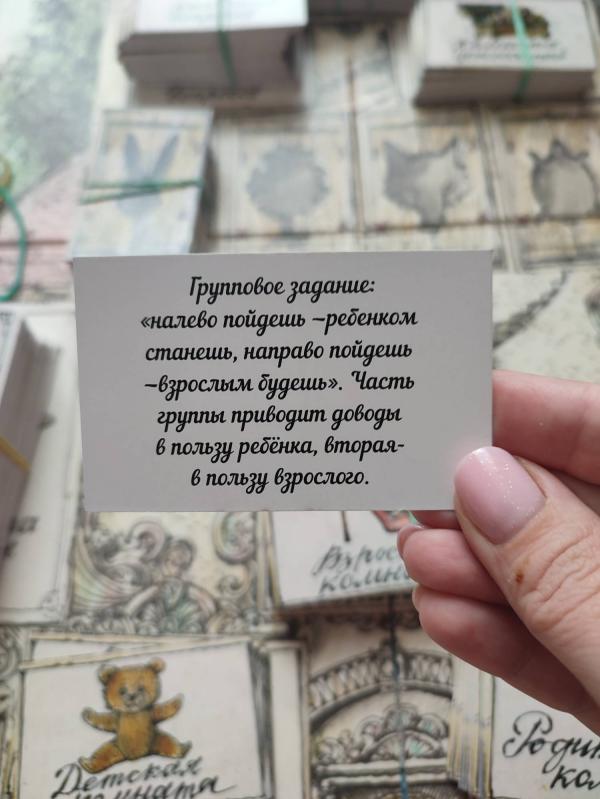 Групповое задание:
«налево пойдешь –ребенком
станешь, направо пойдешь
–взрослым будешь». Часть
группы приводит доводы
в пользу ребёнка, вторая-
в пользу взрослого.
Детская
комната